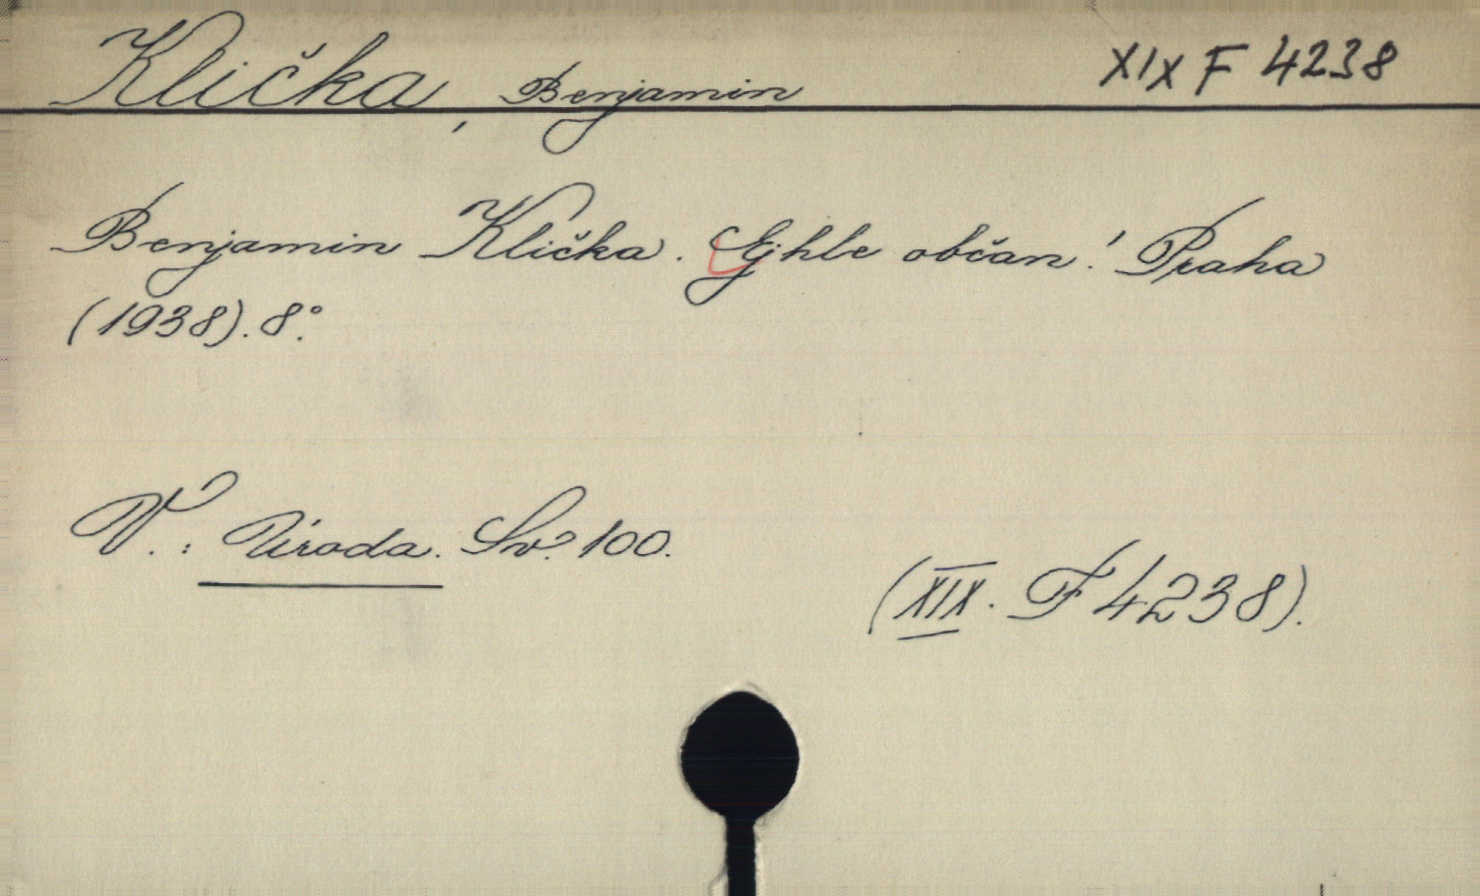 Klička, Benjamin XIX F 4238
Benjamin Klička. Ejhle občan! Praha
(1938). 8°.
V.: Úroda. Sv. 100.
(XIX. F 4238).